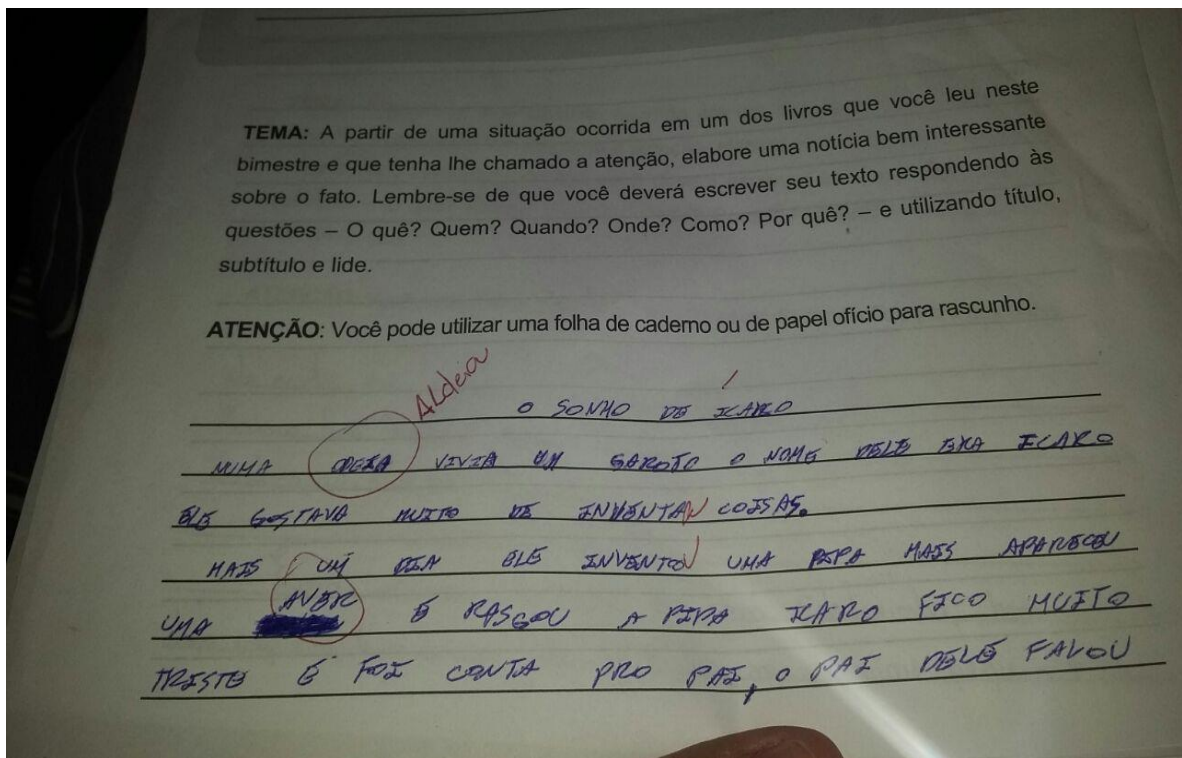 TEMA: A partir de uma situação ocorrida em um dos livros que você leu neste
bimestre e que tenha lhe chamado a atenção, elabore uma notícia bem interessante
sobre o fato. Lembre-se de que você deverá escrever seu texto respondendo às
questões – O quê? Quem? Quando? Onde? Como? Por quê? – e utilizando título,
subtítulo e lide.
ATENÇÃO: Você pode utilizar uma folha de caderno ou de papel ofício para rascunho.
ALdeia
O SONHO DE ICARO
NUMA VIVIA UM GAROTO O NOME DELE ERA ICARO
ELE GOSTAVA MUITO DE INVENTAR COISAS.
MAIS UM DIA ELE INVENTOU UMA PIPA MAIS APARECEU
UMA AVER E RASGOU A PIPA ICARO FICO MUITO
TRISTE E FOI CONTA PRO PAI, O PAI DELE FALOU